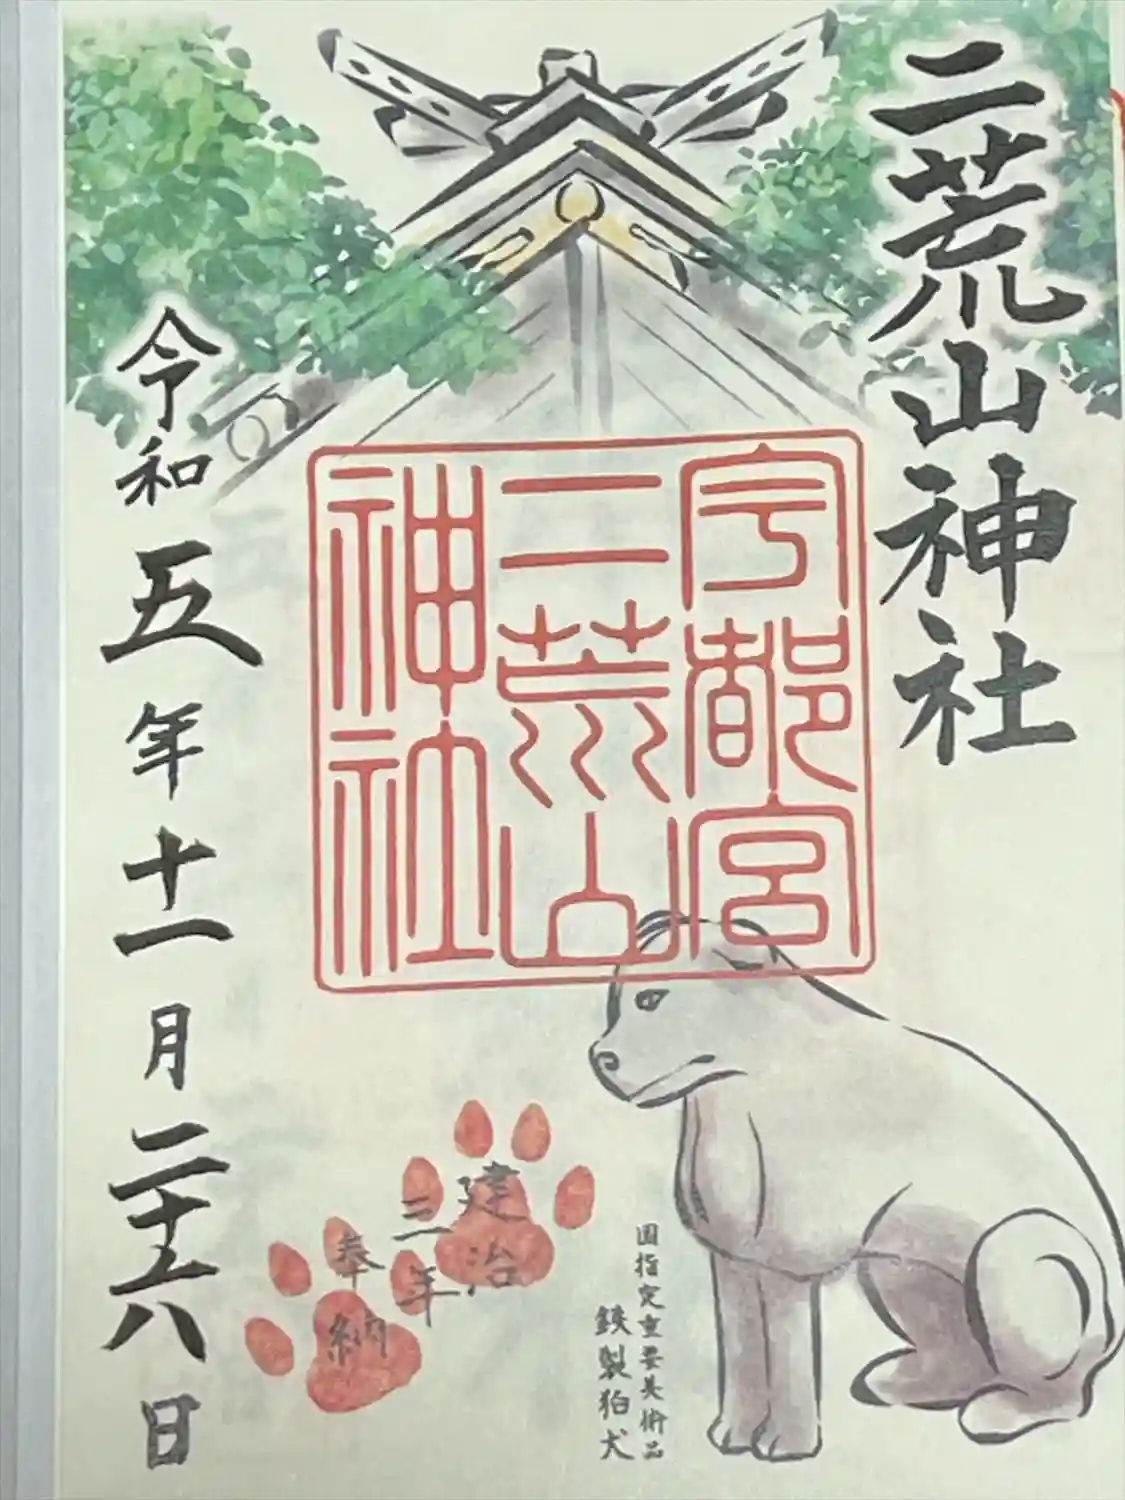 二荒山神社
宇都宮
二荒山
神社
国指定重要美術品
鉄製狛犬
建治
三年
奉納
令和五年十一月二十六日